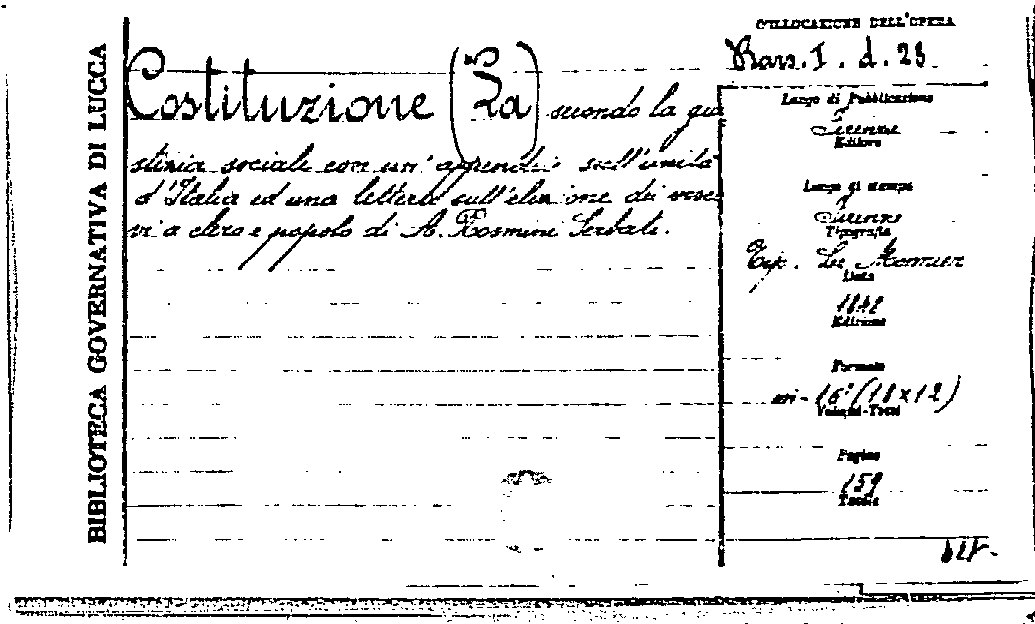 BIBLIOTECA GOVERNATIVA DI LUCCA
Costituzione (La) secondo la giu
stizia sociale con un' appendice sull'unità
d'Italia ed una lettera sull'elezione dei vesco
vi a clero e popolo di A. Rosmini Serbati.
COLLOCAZIONE DELL'OPERA
I. d. 23
Luogo di Pubblicazione
Firenze
Editore
Luogo di stampa
Firenze
Tipografia
Tip. Le Monnier
Data
1848
Edizione
Formato
in-16° (18x12)
Volumi-Tomi
Pagine
159
Tavole